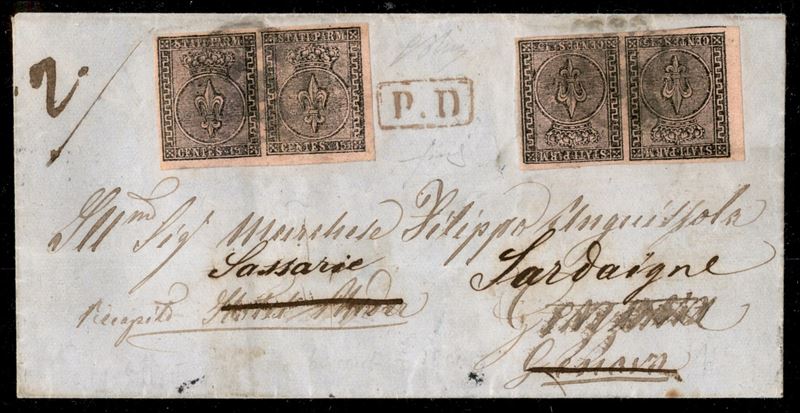 STATI PARM STATI PARM CENTES 15 CENTES 15
2
P.D
CENTES 15 CENTES 15 STATI PARM STATI PARM
Ill^mo Sig^r Marchese Filippo Anguissola
Sassarie Sardaigne
Recapito
Genova